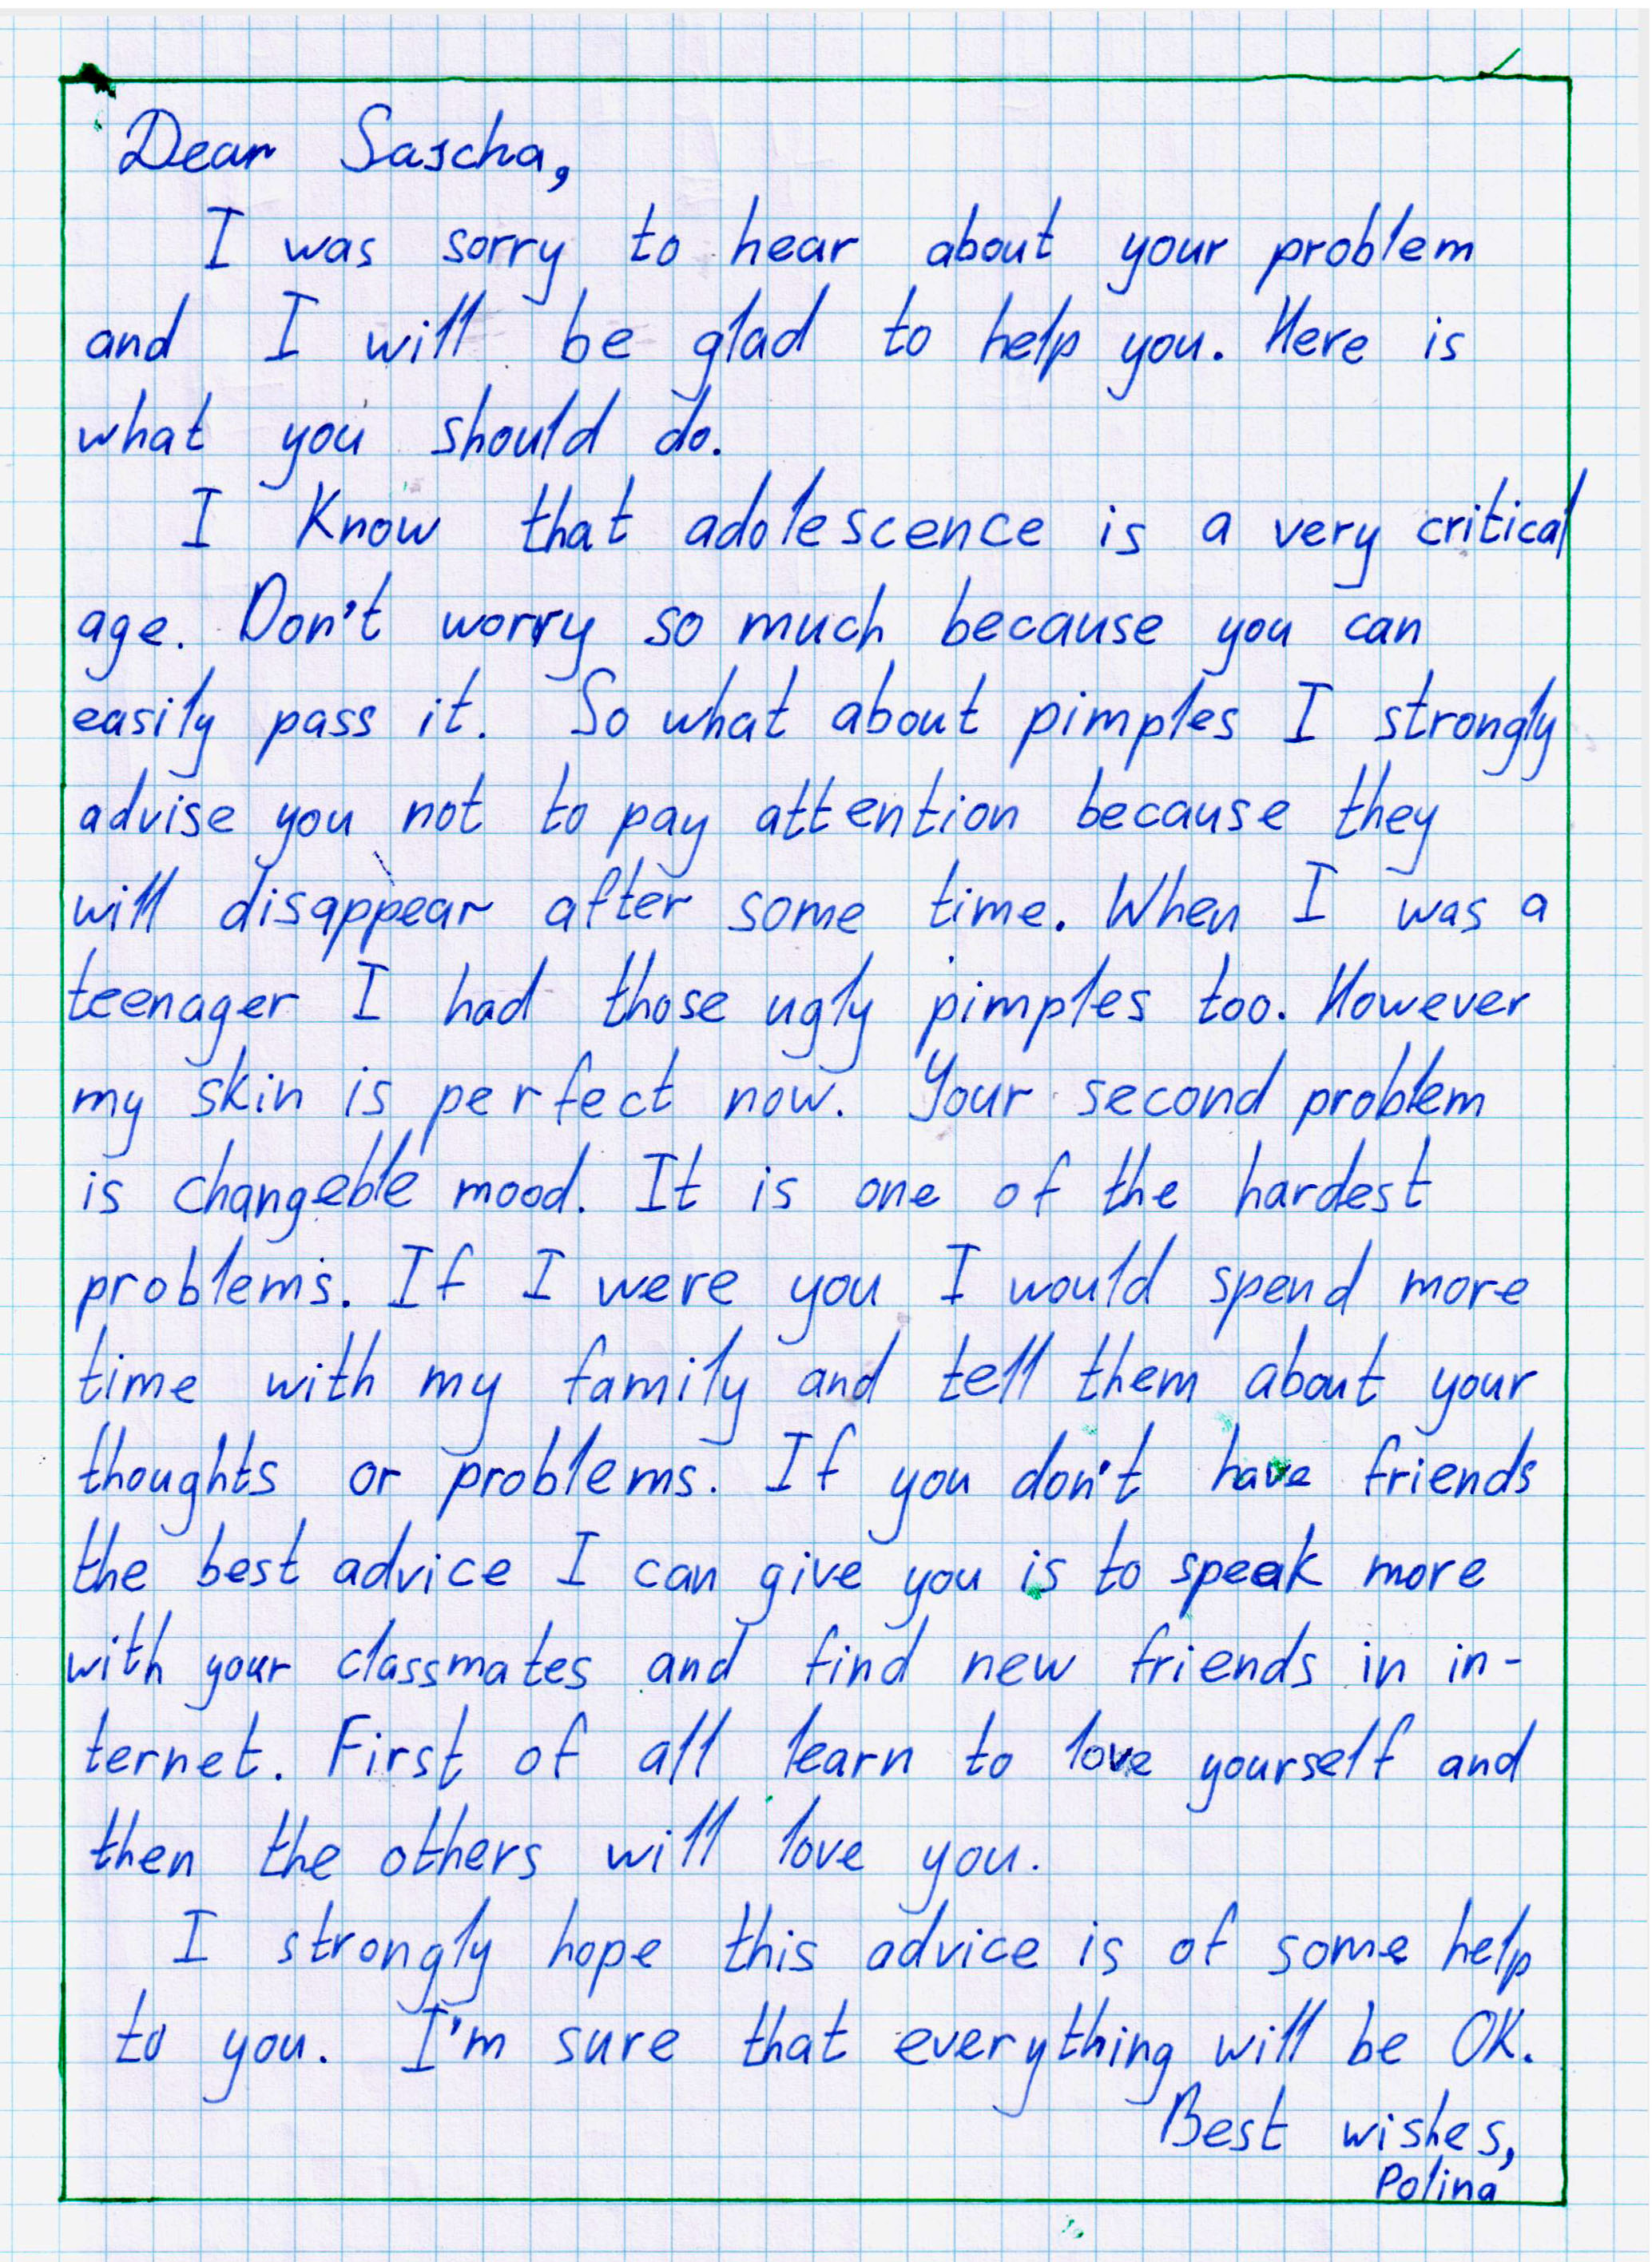 Dear Sascha,
I was sorry to hear about your problem
and I will be glad to help you. Here is
what you should do.
I know that adolescence is a very critical
age. Don't worry so much because you can
easily pass it. So what about pimples I strongly
advise you not to pay attention because they
will disappear after some time. When I was a
teenager I had those ugly pimples too. However
my skin is perfect now. Your second problem
is changeble mood. It is one of the hardest
problems. If I were you I would spend more
time with my family and tell them about your
thoughts or problems. If you don't have friends
the best advice I can give you is to speak more
with your classmates and find new friends in in-
ternet. First of all learn to love yourself and
then the others will love you.
I strongly hope this advice is of some help
to you. I'm sure that everything will be OK.
Best wishes,
Polina